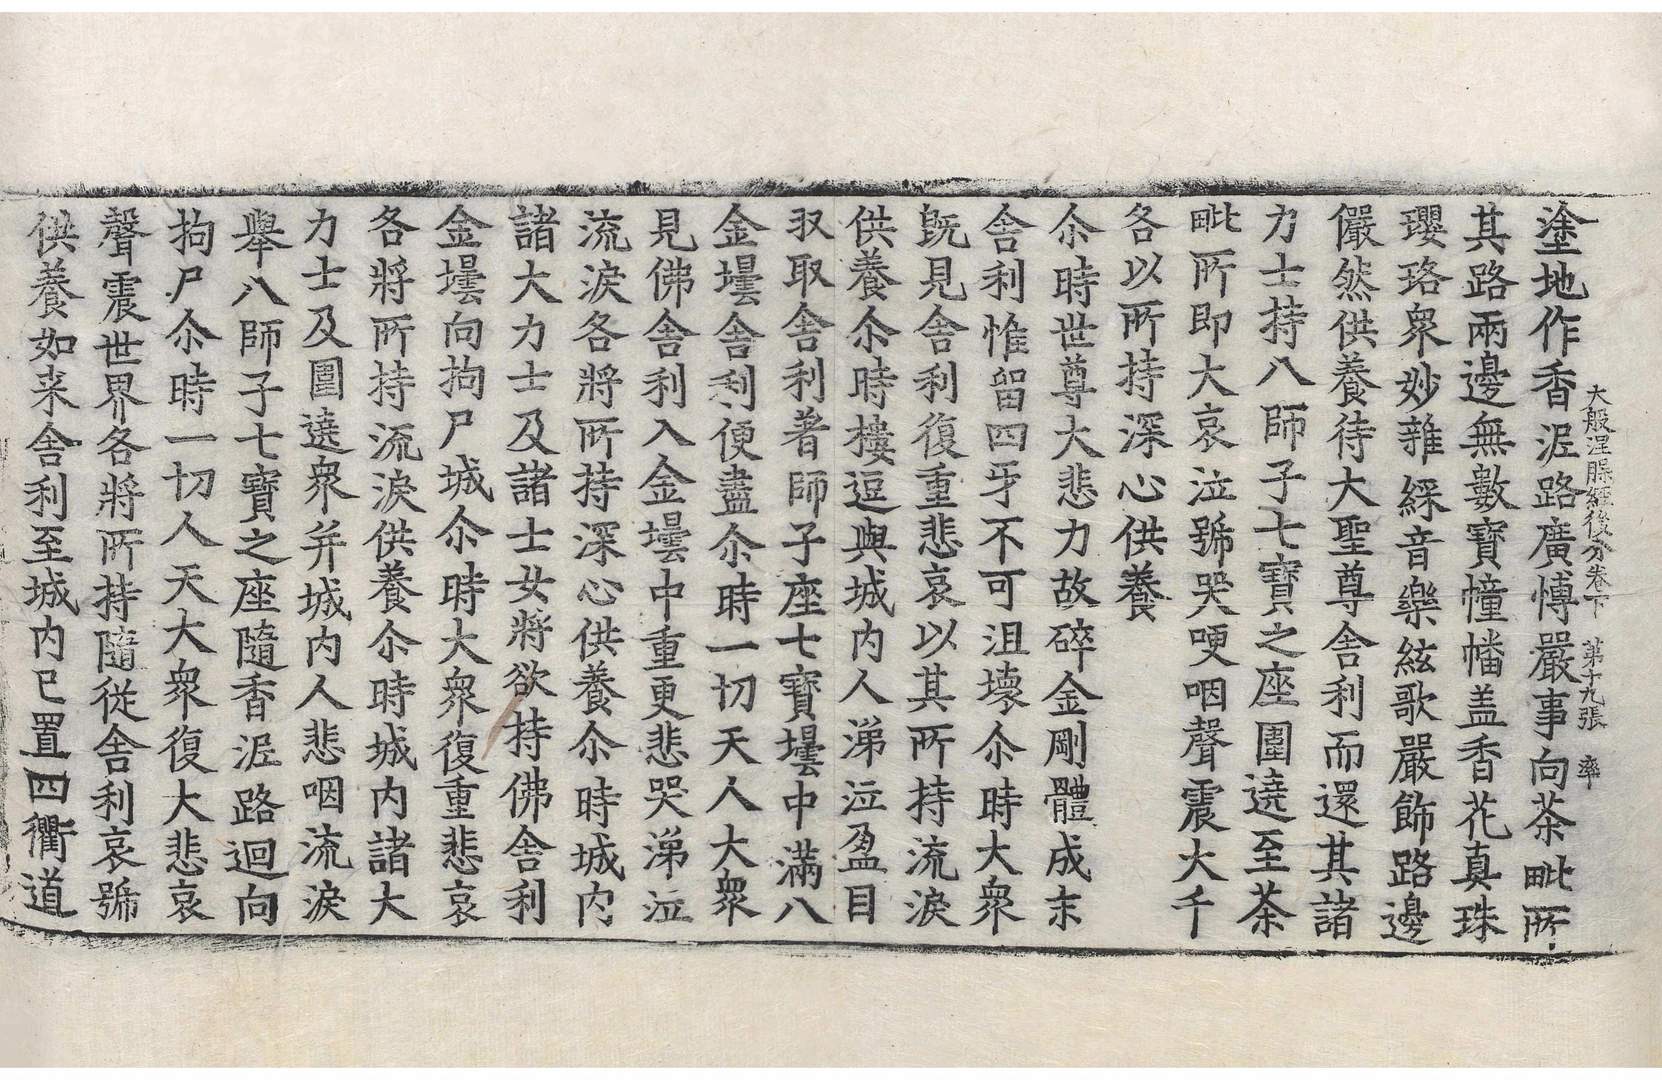 大般涅槃經後分卷下 第十九張 率
塗地作香泥路廣愽嚴事向茶毗所
其路兩邊無數寶幢幡盖香花真珠
瓔珞衆妙雜綵音樂絃歌嚴飾路邊
儼然供養待大聖尊舍利而還其諸
力士持八師子七寶之座圍遶至茶
毗所即大哀泣號哭哽咽聲震大千
各以所持深心供養
尒時世尊大悲力故碎金剛體成末
舍利惟留四牙不可沮壞尒時大衆
旣見舍利復重悲哀以其所持流淚
供養尒時樓逗與城內人涕泣盈目
収取舍利著師子座七寶壜中滿八
金壜舍利便盡尒時一切天人大衆
見佛舍利入金壜中重更悲哭涕泣
流淚各將所持深心供養尒時城內
諸大力士及諸士女將欲持佛舍利
金壜向拘尸城尒時大衆復重悲哀
各將所持流淚供養尒時城內諸大
力士及圍遶衆并城內人悲咽流淚
轝八師子七寶之座隨香泥路迴向
拘尸尒時一切人天大衆復大悲哀
聲震世界各將所持隨從舍利哀號
供養如来舍利至城內已置四衢道